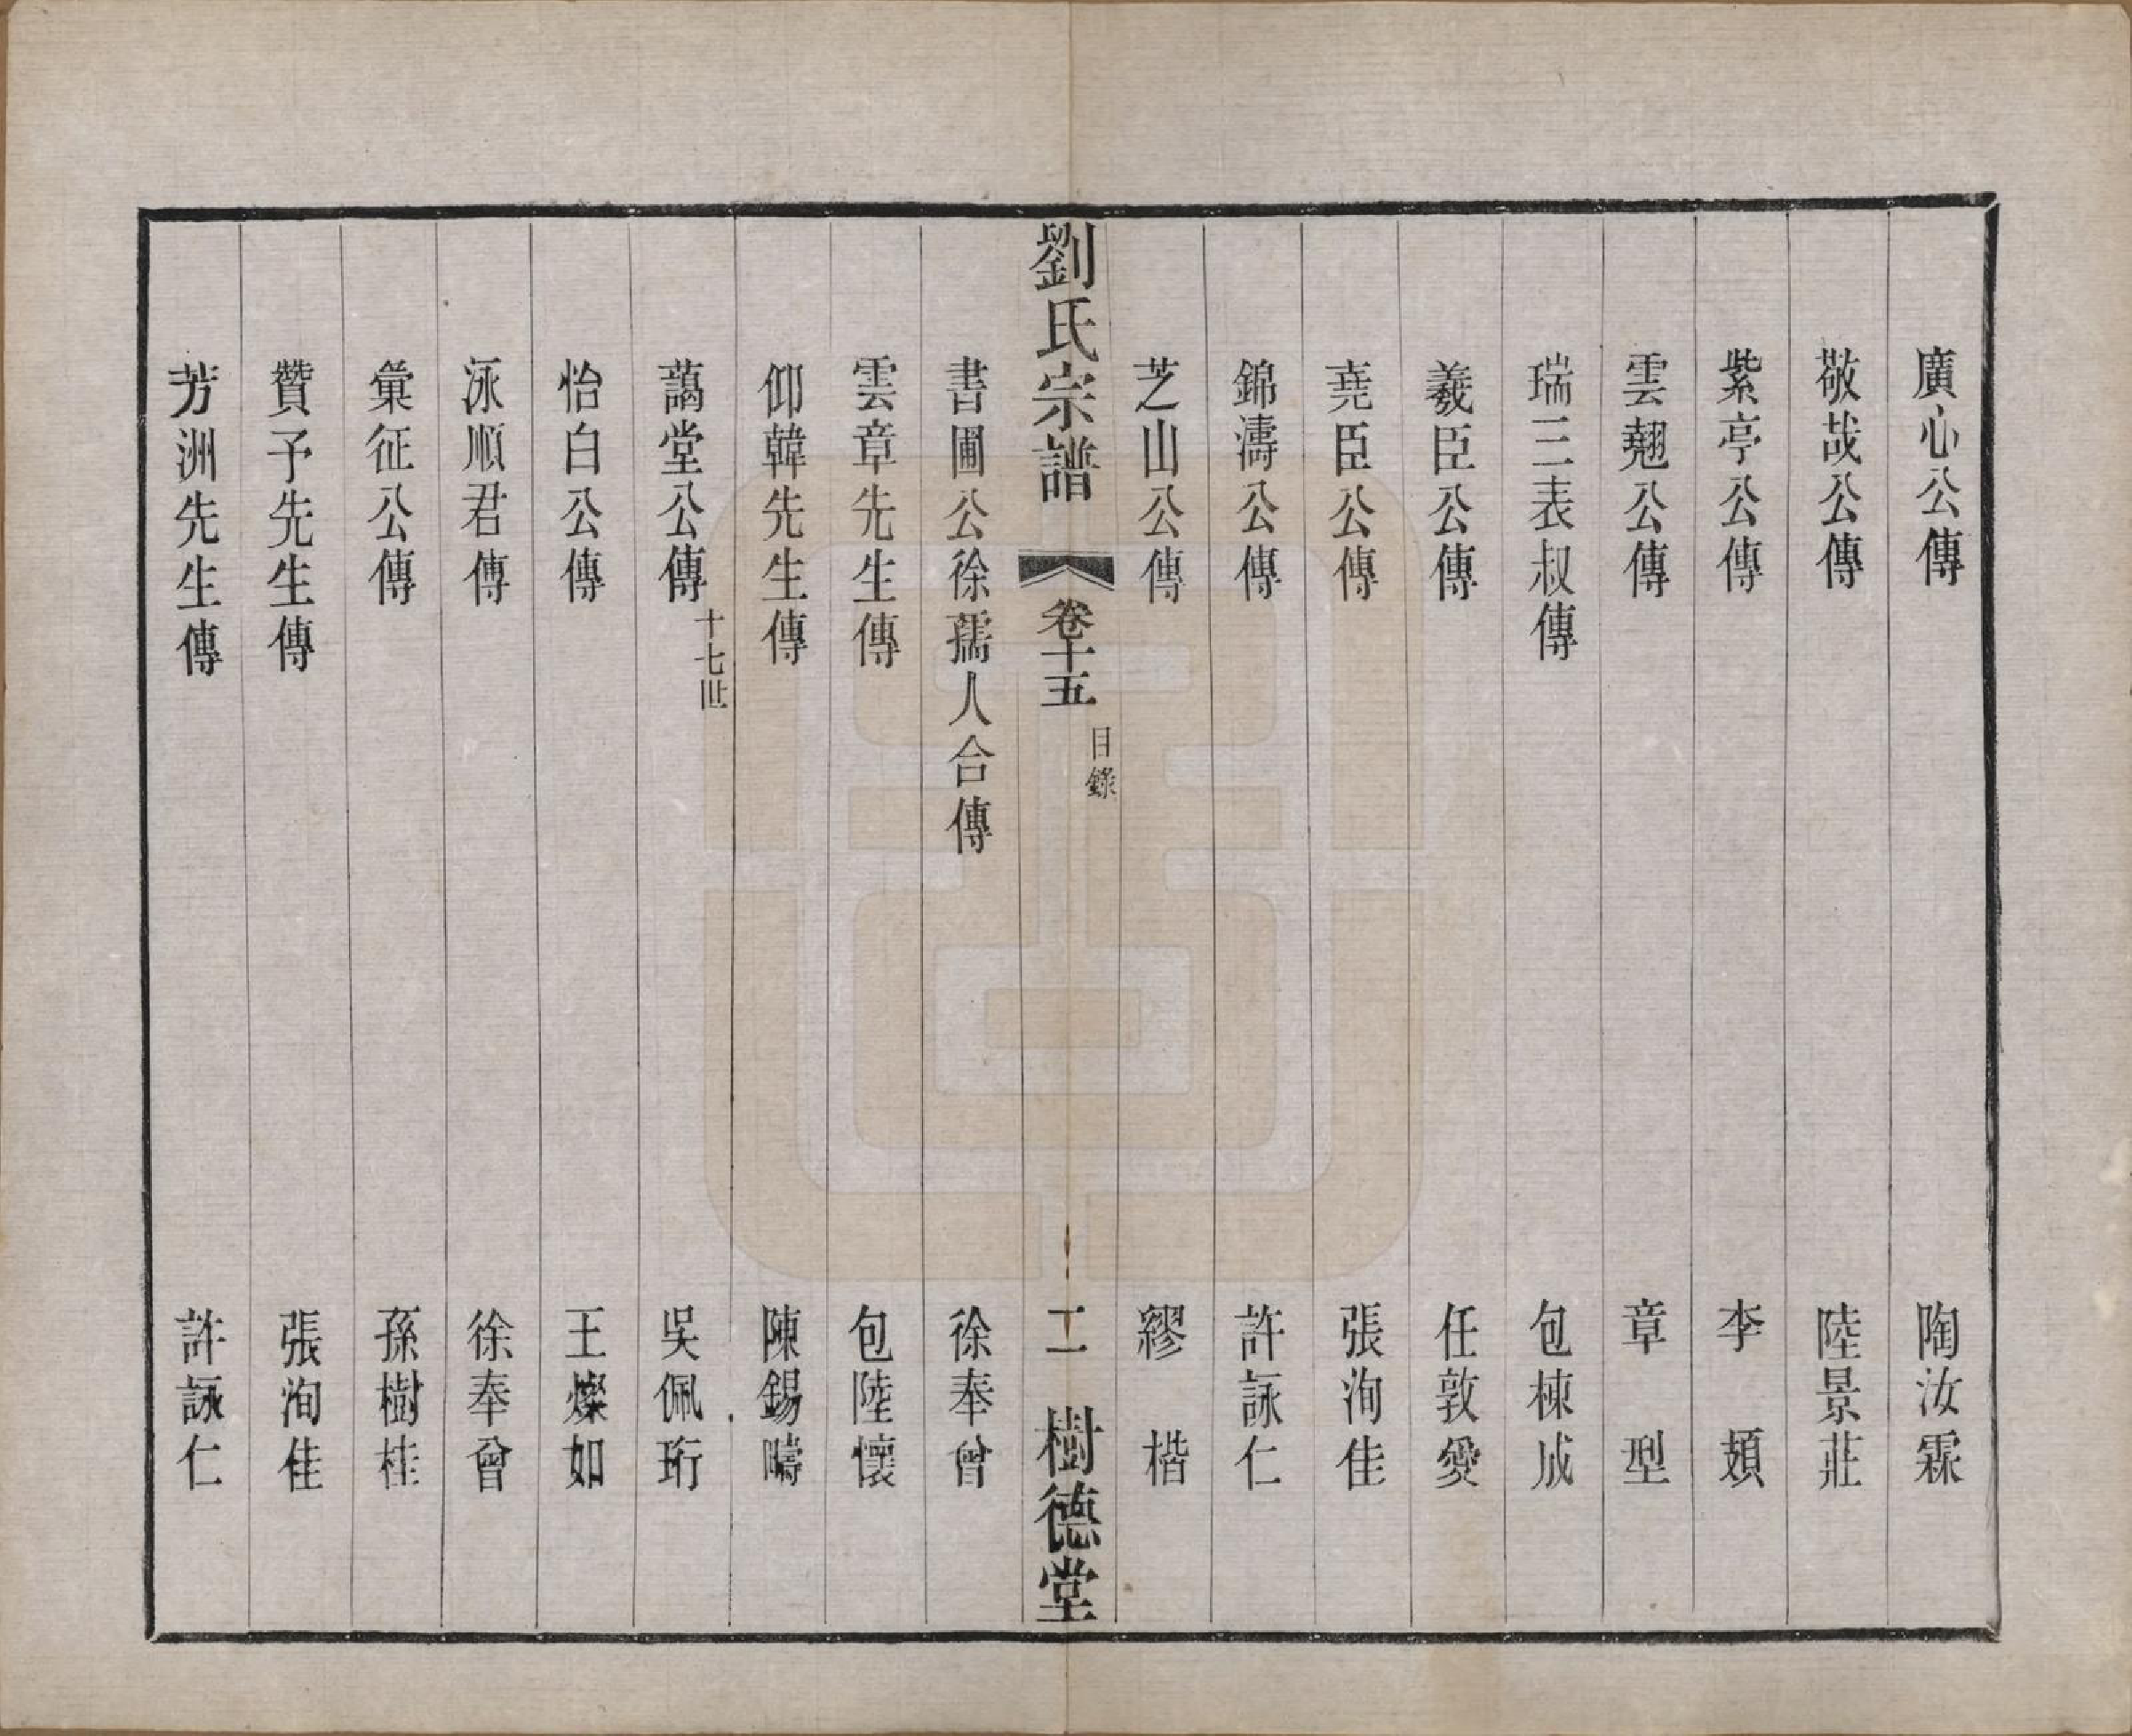 廣心公傳　陶汝霖
敬哉公傳　陸景莊
紫亭公傳　李頞
雲翹公傳　章型
瑞三表叔傳　包棟成
羲臣公傳　任敦愛
堯臣公傳　張洵佳
錦濤公傳　許詠仁
芝山公傳　繆楷
劉氏宗譜　卷十五　目錄　二　樹德堂
書圃公徐孺人合傳　徐奉曾
雲章先生傳　包陸懷
仰韓先生傳　陳錫疇
藹堂公傳　十七世　吳佩珩
怡白公傳　王燦如
泳順君傳　徐奉曾
彙征公傳　孫樹桂
贊予先生傳　張洵佳
芳洲先生傳　許詠仁